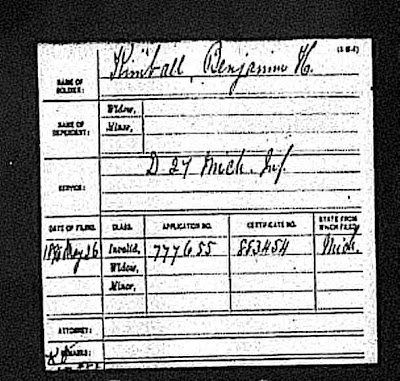 (3-16-4)
NAME OF SOLDIER: Kimball, Benjamin H.
NAME OF DEPENDENT: Widow,
Minor,
SERVICE: D 27 Mich. Inf.
DATE OF FILING. CLASS. APPLICATION NO. CERTIFICATE NO. STATE FROM WHICH FILED.
May 26 Invalid, 777655 883454 Mich.
Widow,
Minor,
ATTORNEY:
REMARKS: